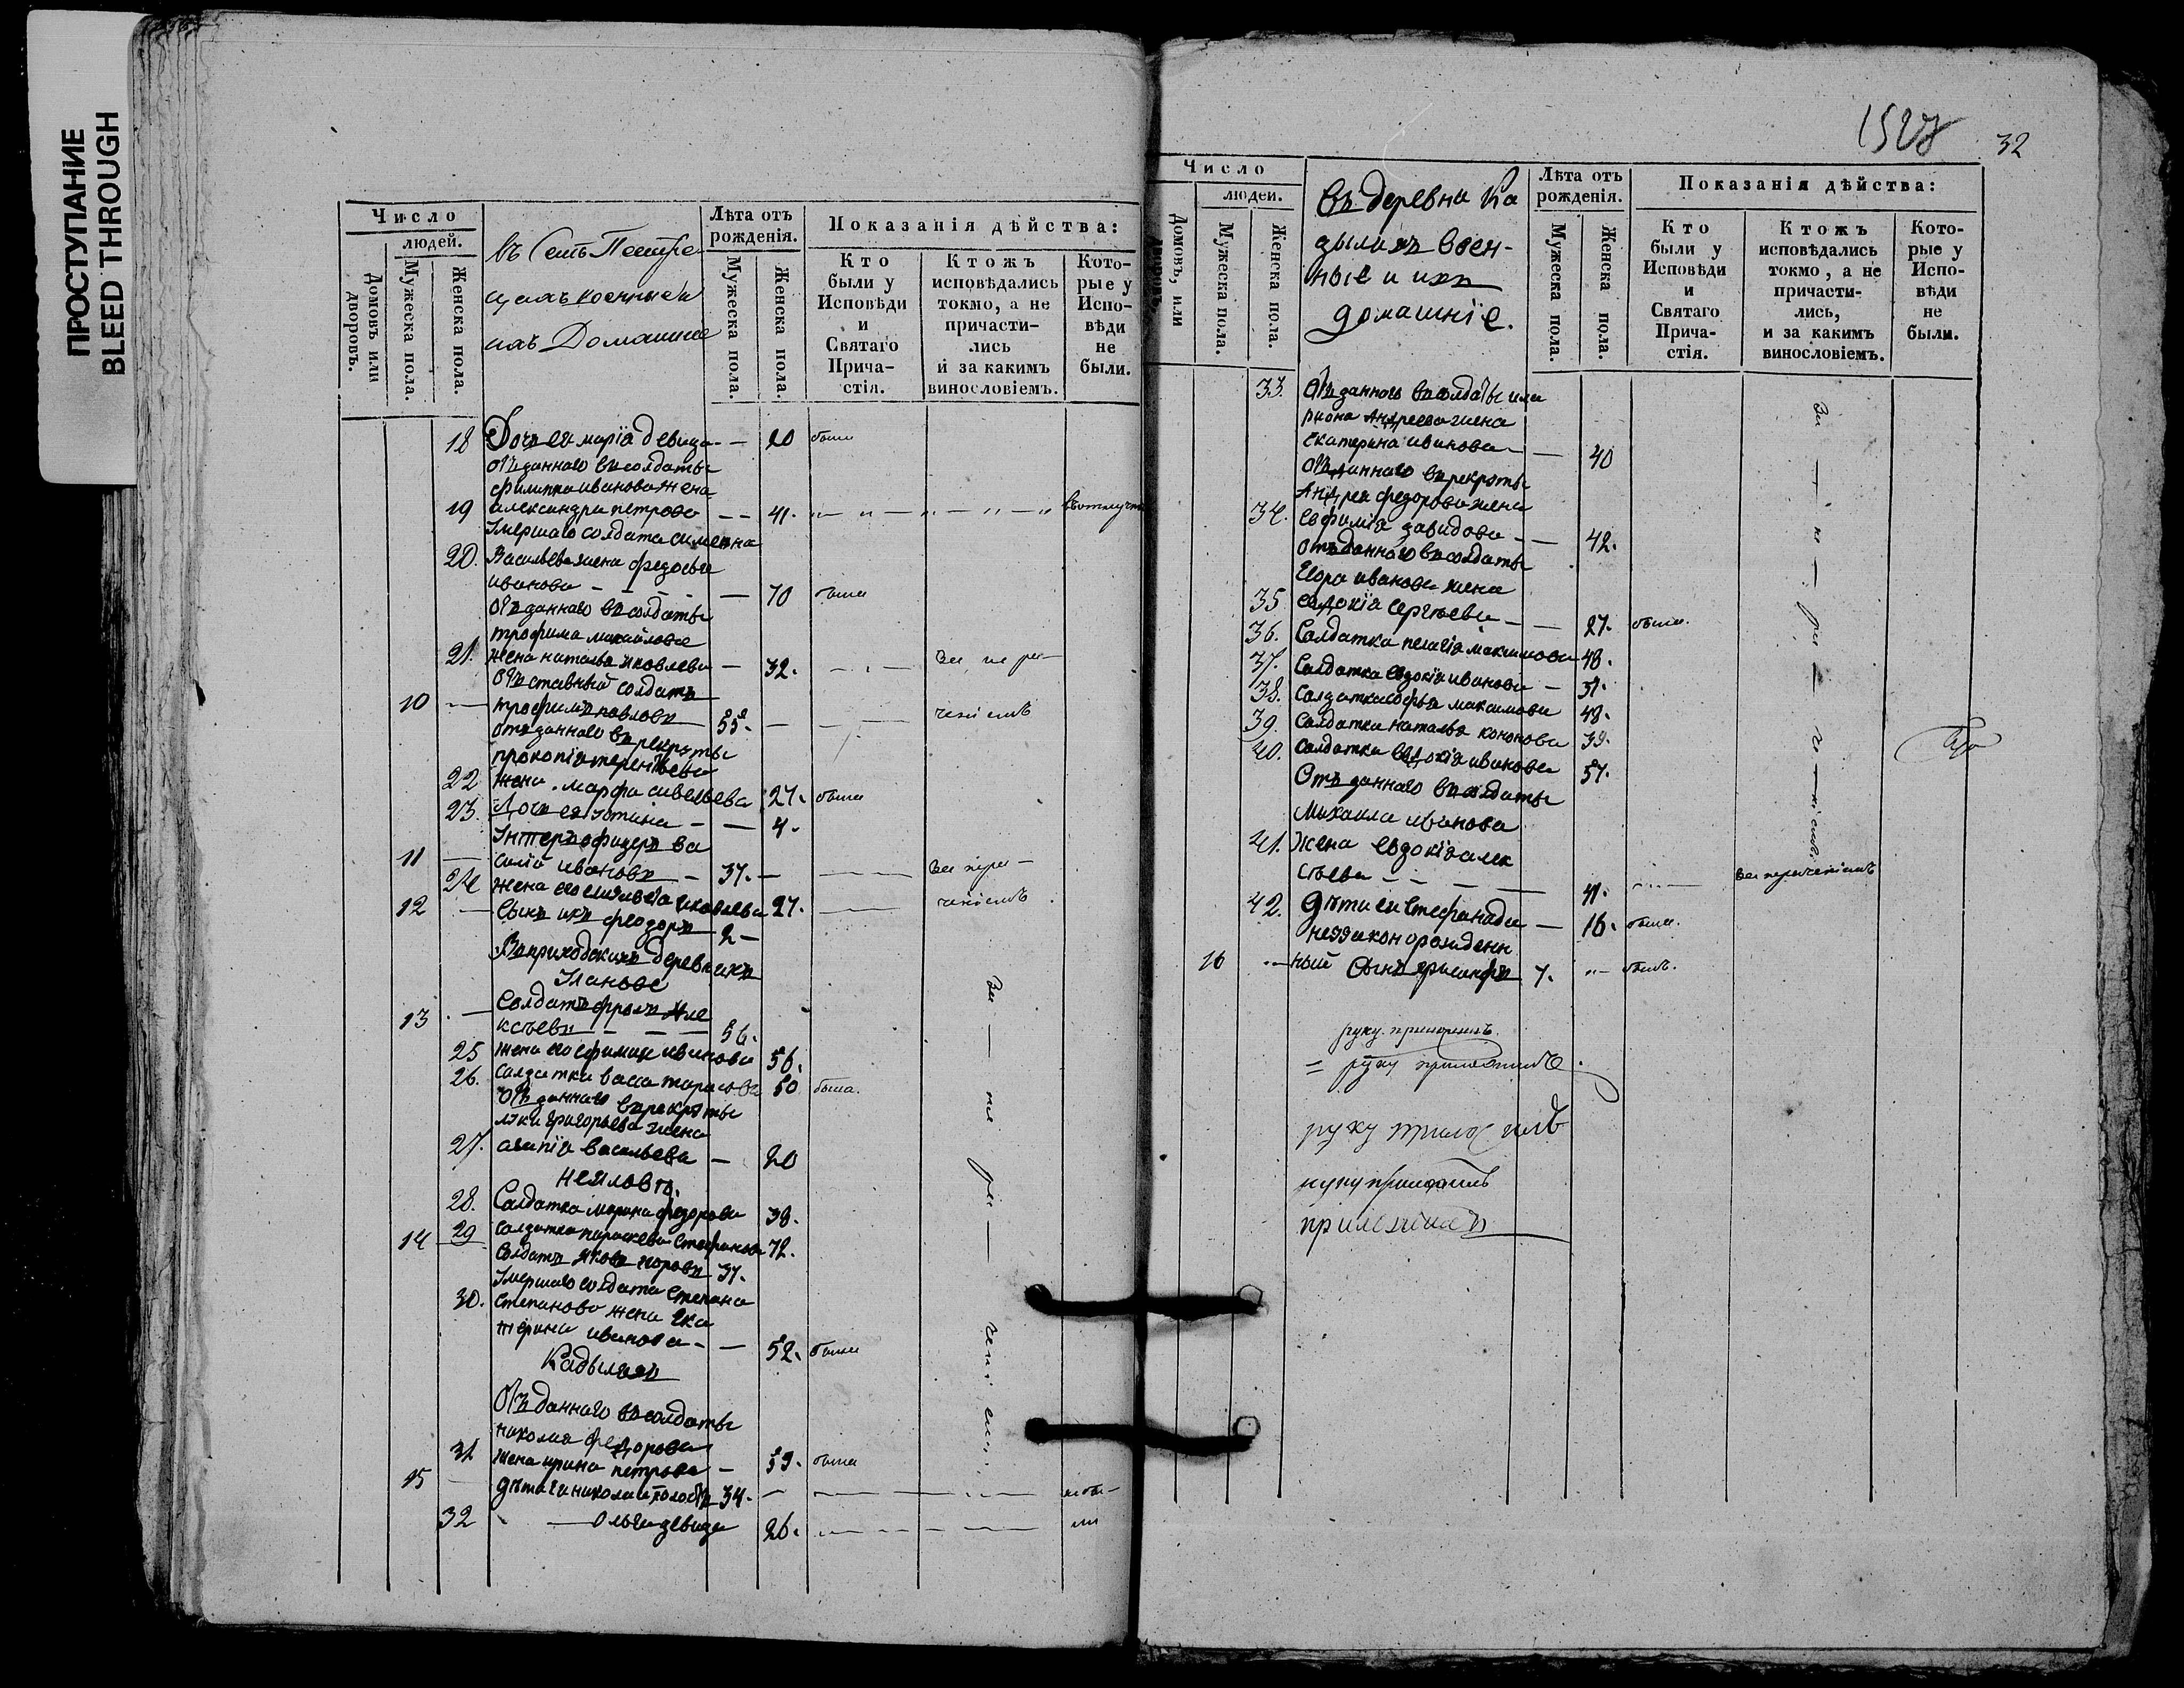 ПРОСТУПАНИЕ
BLEED THROUGH
Число
людей.
Домовъ или дворовъ.
Мужеска пола.
Женска пола.
въ Селѣ
цахъ военные и
ихъ Домашніе
Лѣта отъ рожденія.
Мужеска пола.
Женска пола.
Показанія дѣйства:
Кто были у Исповѣди и Святаго Прича-стія.
Ктожъ исповѣдались токмо, а не причасти-лись и за какимъ винословіемъ.
Кото-рые у Испо-вѣди не были.
18 Дочь ея марія девица — 20 была
отъ даннаго въ солдаты
филиппа иванова жена
19 александра петрова — — 41.
Умершаго солдата симеона
20. Васильева жена федосья
иванова — 70 была
отъ даннаго въ солдаты
трофима михайлова
21. жена наталья яковлева — 32.
отъ ставный солдатъ
10 — трофимъ павловъ 55.
отъ даннаго въ рекруты
прокопія терентьева
22 жена марфа савельева 27. была
23. Дочь ея устинья — — 4.
Унтеръ офицеръ ва
11 — силій ивановъ — 37. —
24 жена его елизавета яковлева 27.
12 — сынъ ихъ феодоръ 2 —
Въ приходскихъ деревняхъ
Улановѣ
13 — Солдатъ фролъ Але
ксѣевъ — — — 56.
25 жена его ефимия иванова 56.
26. солдатка васса тарасова 50 была.
отъ даннаго въ рекруты
луки григорьева жена
27. агапія васильева — 20
Неяловѣ.
28. Солдатка марина федорова 38.
29 солдатка параскева стефанова 72.
14 Солдатъ яковъ 37.
Умершаго солдата степана
30. степанова жена ека
терина иванова — — 52. была
Кадыляхъ
отъ даннаго въ солдаты
николая федорова
31 жена ирина петрова — 59. была
15 — дѣти ея николай холостъ 34. —
32 — ольга девица 26.
1527
32
Число
людей.
Домовъ, или дворовъ.
Мужеска пола.
Женска пола.
Въ деревна Ка
дыляхъ воен-
ные и ихъ
домашніе.
Лѣта отъ рожденія.
Мужеска пола.
Женска пола.
Показанія дѣйства:
Кто были у Исповѣди и Святаго Прича-стія.
Ктожъ исповѣдались токмо, а не причасти-лись, и за какимъ винословіемъ.
Кото-рые у Испо-вѣди не были.
33. отъ даннаго въ солдаты ила
риона Андреева жена
екатерина иванова — — 40
отъ даннаго въ рекруты
Андрея федорова жена
34. евфимія давидова — — 42.
отъ даннаго въ солдаты
Егора иванова жена
35 евдокія сергѣева — — 27. была.
36. Солдатка пелагія максимова 48.
37. Солдатка евдокія иванова — 37.
38. Солдатка софья максимова 48.
39. Солдатка наталья кононова 39.
40. солдатка евдокія иванова 57.
Отъ даннаго въ солдаты
Михаила иванова
41. Жена евдокія алек
сѣева — — — — 41.
42. дѣти ея стефанида — 16. была.
незаконорожденн
16 — ный Сынъ 7. былъ.
руку приложилъ
руку приложилъ
руку приложилъ
руку приложилъ
приложилъ